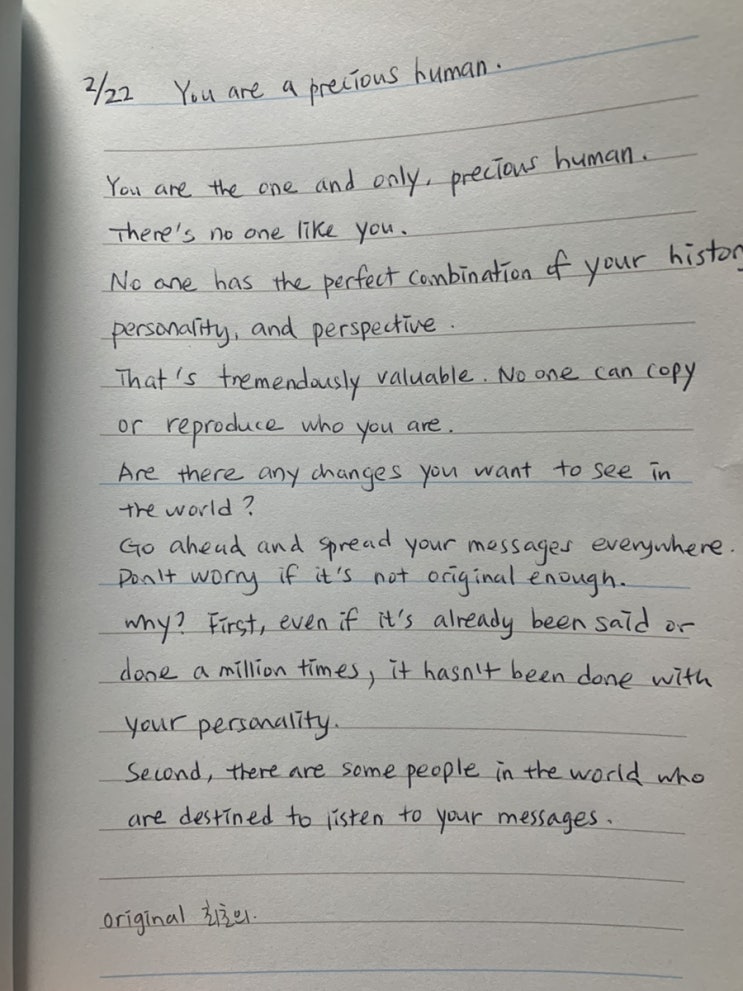 2/22 You are a precious human.
You are the one and only, precious human.
There's no one like you.
No one has the perfect combination of your histor
personality, and perspective.
That's tremendously valuable. No one can copy
or reproduce who you are.
Are there any changes you want to see in
the world?
Go ahead and spread your messages everywhere.
Don't worry if it's not original enough.
Why? First, even if it's already been said or
done a million times, it hasn't been done with
your personality.
Second, there are some people in the world who
are destined to listen to your messages.
original 최초의.